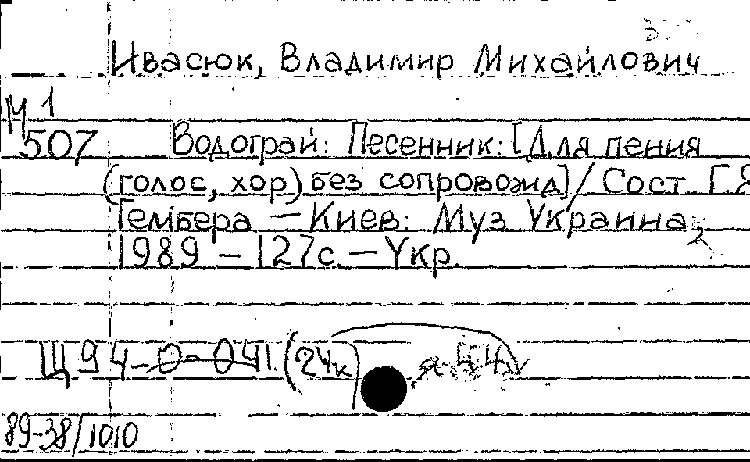 Ивасюк, Владимир Михайлович
М1
507 Водограй: Песенник: [Для пения
(голос, хор) без сопровожд] / Сост. Г.Я
Тембера — Киев: Муз Украина,
1989 — 127с. — Укр.
Щ94-0-041. (24к)
89-38/1010